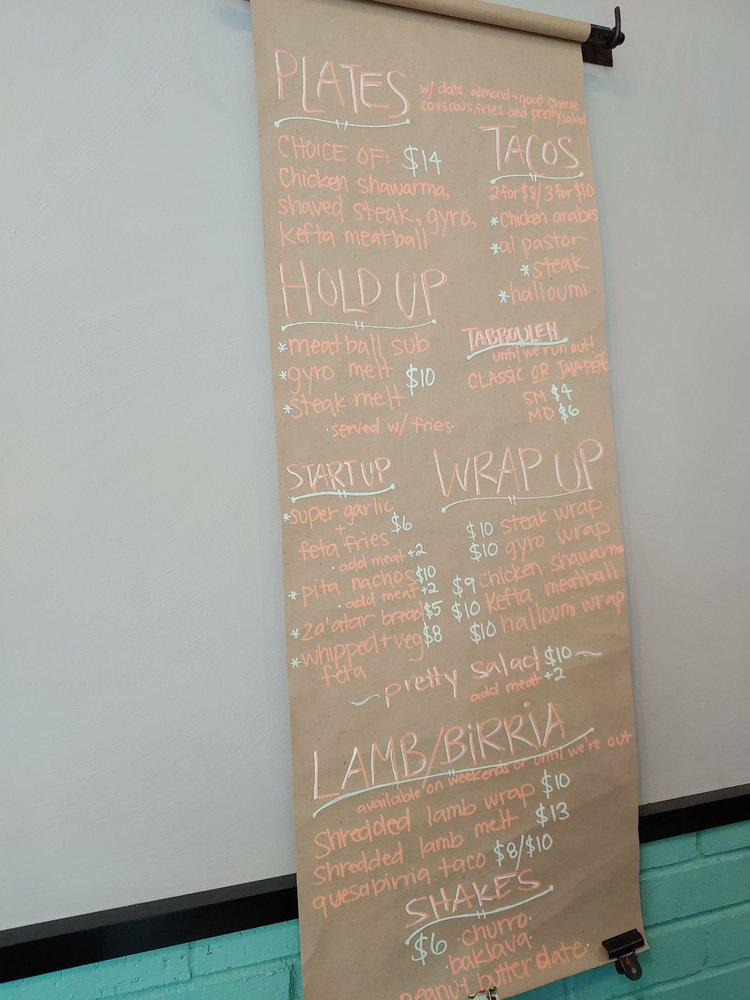 PLATES
w/ date, almond + goat cheese
couscous, fries and pretty salad
CHOICE OF: $14
Chicken shawarma,
shaved steak, gyro,
kefta meatball
TACOS
2 for $8/3 for $10
*Chicken arabes
*al pastor
*steak
*halloumi
HOLD UP
*meatball sub
*gyro melt $10
*steak melt
served w/ fries
TABBOULEH
until we run out!
CLASSIC OR JALAPEÑO
SM $4
MD $6
START UP
*super garlic
+ $6
feta fries
add meat +2
*pita nachos $10
add meat +2
*za'atar bread $5
*whipped + veg $8
feta
WRAP UP
$10 steak wrap
$10 gyro wrap
$9 chicken shawarma
$10 kefta meatball
$10 halloumi wrap
~pretty salad $10~
add meat +2
LAMB/BIRRIA
available on weekends or until we're out
Shredded lamb wrap $10
Shredded lamb melt $13
quesabirria taco $8/$10
SHAKES
$6 churro
baklava
peanut butter date